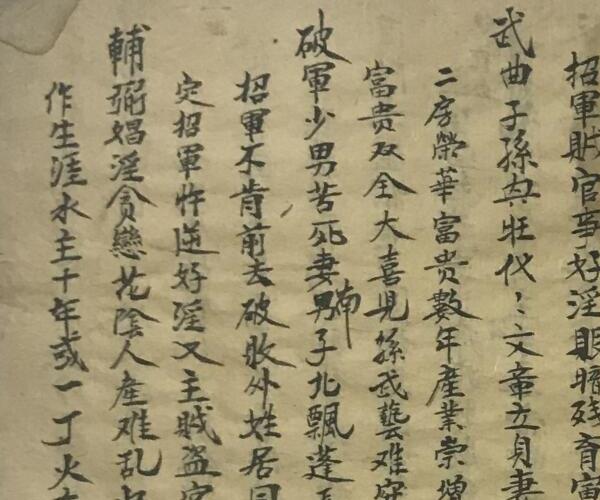 招軍賊官事好淫眼瞎残育
武曲子孫典旺代〻文章立貞妻
二房榮華富贵數年產業崇增
富贵双全大喜見孫武藝难守
破軍少男苦死妻男南子北飄蓬
招軍不肯前去破敗外姓居同
定招軍忤逆好淫又主賊盗官
輔弼娼淫貪戀花陰人產难乱
作生涯水主十年或一丁火